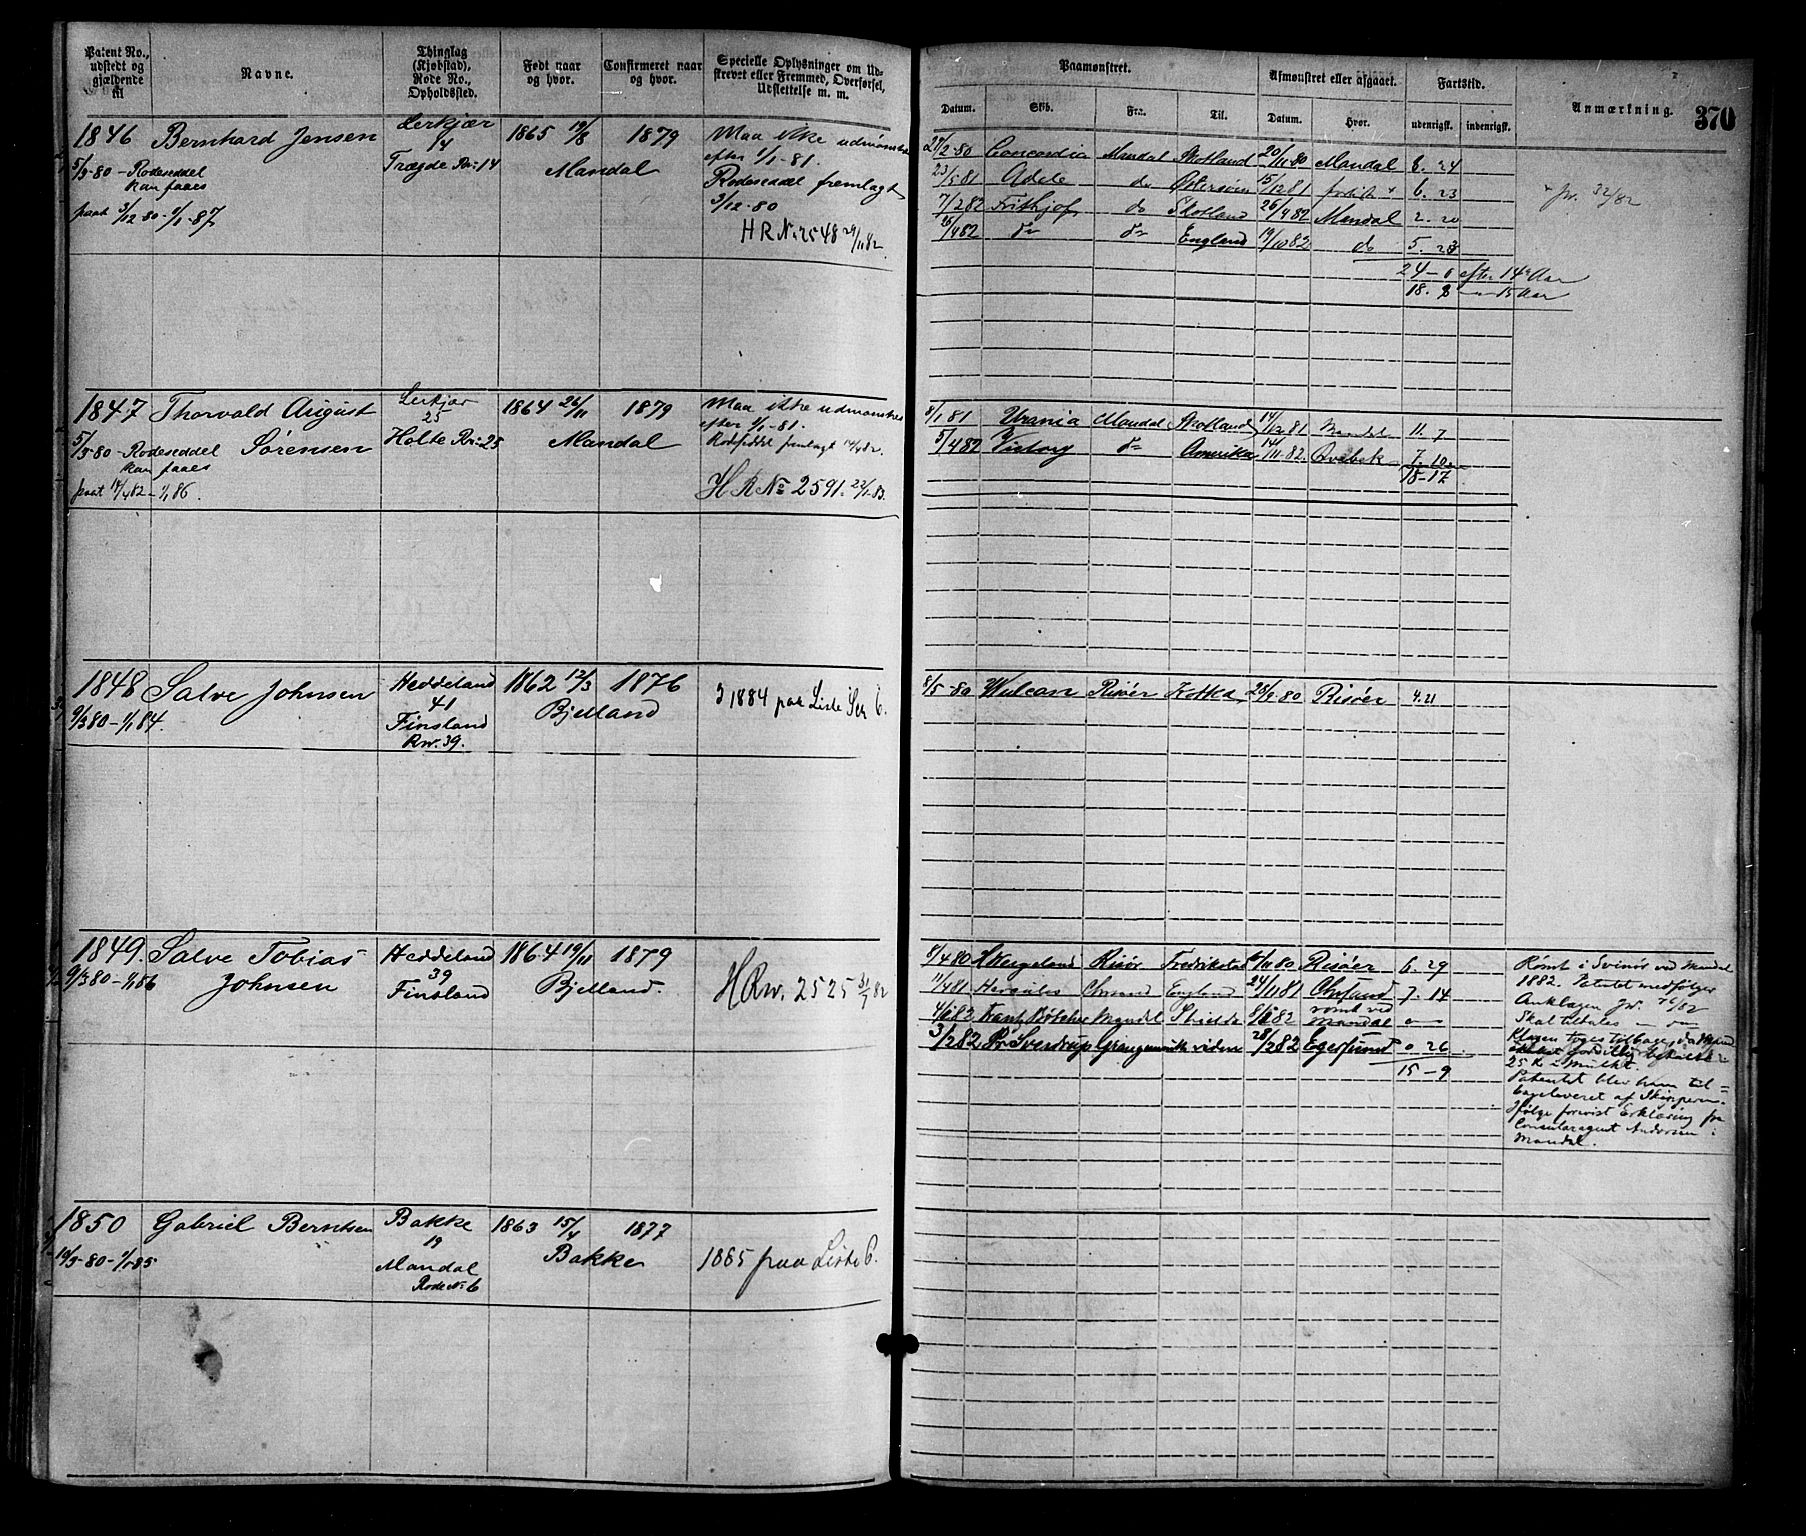 Patent No., udstedt og gjældende til
Navne.
Thinglag (Kjøbstad), Rode No., Opholdssted.
Født naar og hvor.
Confirmeret naar og hvor.
Specielle Oplysninger om Udskrevet eller Fremmed, Overførsel, Udslettelse m. m.
Paamønstret.
Datum.
Skib.
Fra.
Til.
Afmønstret eller afgaaet.
Datum.
Hvor.
Fartstid.
udenrigsk.
indenrigsk.
Anmærkning.
370
1846 Bernhard Jensen
5/3-80 - Rodeseddel
kan faaes
paat 3/12 80 - 1/1-87
Lerkjær
14
Trægde Rn: 14
1865 19/8 1879
Mandal
Maa ikke udmønstres
efter 1/1-81.
Rodeseddel fremlagt
3/12-80
HR No 2548 29/11 82
27/2-80 Concordia Mandal Skotland 20/11-80 Mandal 8. 24
23/5 81 Adele do Østersøen 15/12 81 6. 23
7/2 82 Frithjof do Skotland 26/4 82 Mandal 2. 20
26/4 82 do do England 19/10 82 do 5. 23
24-0 efter 14 Aar
18. 8 - 15 Aar
Jr. 32/82
1847 Thorvald August
Sørensen
5/3-80 - Rodeseddel
kan faaes
paat 14/4 82 - 1/1 86.
Lerkjær
25
Holte Rn: 25
1864 26/11 1879
Mandal
Maa ikke udmønstres
efter 1/1-81.
Rodeseddel fremlagt 14/4 82.
HR No 2591. 22/1-83.
8/1 81 Urania Mandal Skotland 14/12 81 Mandal 11. 7
5/4 82 Victory do Amerika 14/11-82. 7. 10
18-17
1848 Salve Johnsen
9/3 80 - 1/1 84.
Heddeland
41
Finsland
Rn. 39.
1862 12/3 1876
Bjelland
I 1884 paa Liste Ser 6.
8/5-80 Wulcan Risøer Kotka 29/9-80 Risøer 4. 21
1849. Salve Tobias
Johnsen
9/3 80 - 1/1 86
Heddeland
39
Finsland
1864 19/11 1879
Bjelland.
HRn. 2525 31/7 82
8/4 80 H Wergeland Risør Fredrikstad 6/11 80 Risøer 6. 29
11/4 81 Hercules Chrsand England 24/11 81 Chrsand 7. 14
4/6 82 Mandal 8/6 82 rømt ved
Mandal
3/2 82 Pr Sverdrup Grangemouth viden 28/2 82 Egersund 0. 26
15-9
Rømt i Svinør ved Mandal
1882. Patentet medfølger
Anklagen Jr. 76/82
Skal tiltales
Klagen toges tilbage, da
25 Kr i Mulkt.
Patentet blev ham til-
bageleveret af Skipperen
Ifølge forevist Erklæring fra
Consularagent Andorsen i
Mandal.
1850 Gabriel Berntsen
19/3-80 - 1/1 85
Bakke
19
Mandal
Rode No 6
1863 15/4 1877
Bakke
1885 paa Liste 6.